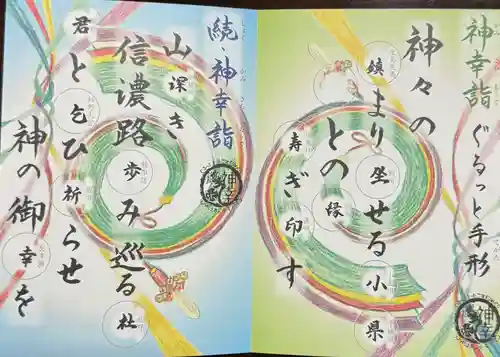 神幸詣
ぐるっと手形
神々の
鎮まり坐せる小県
との縁
寿ぎ印す
続・神幸詣
山深き、
信濃路歩み巡る社
君と乞ひ祈らせ
神の御幸を